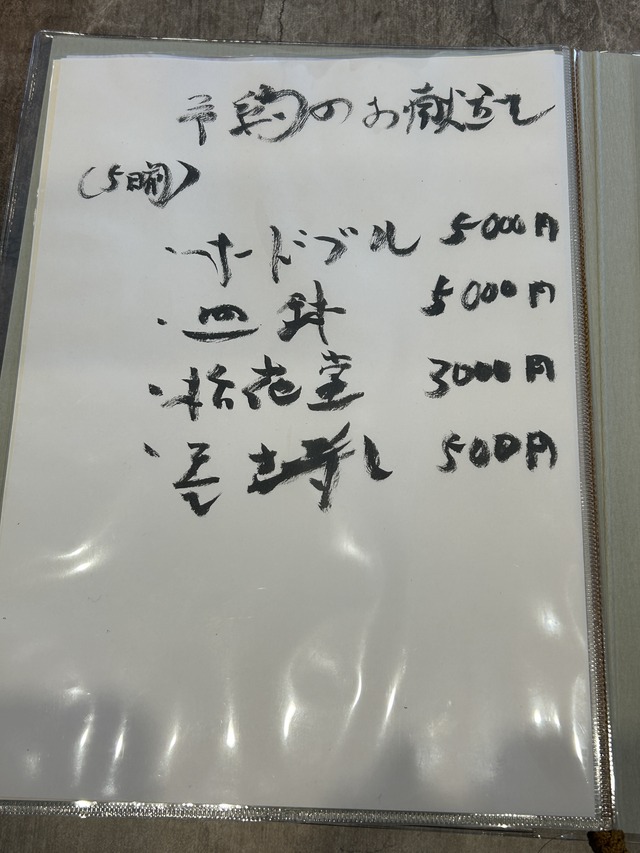 予約のお献立て
(5日前)
・オードブル 5000円
・皿鉢 5000円
・松花堂 3000円
・茶わ蒸し 500円